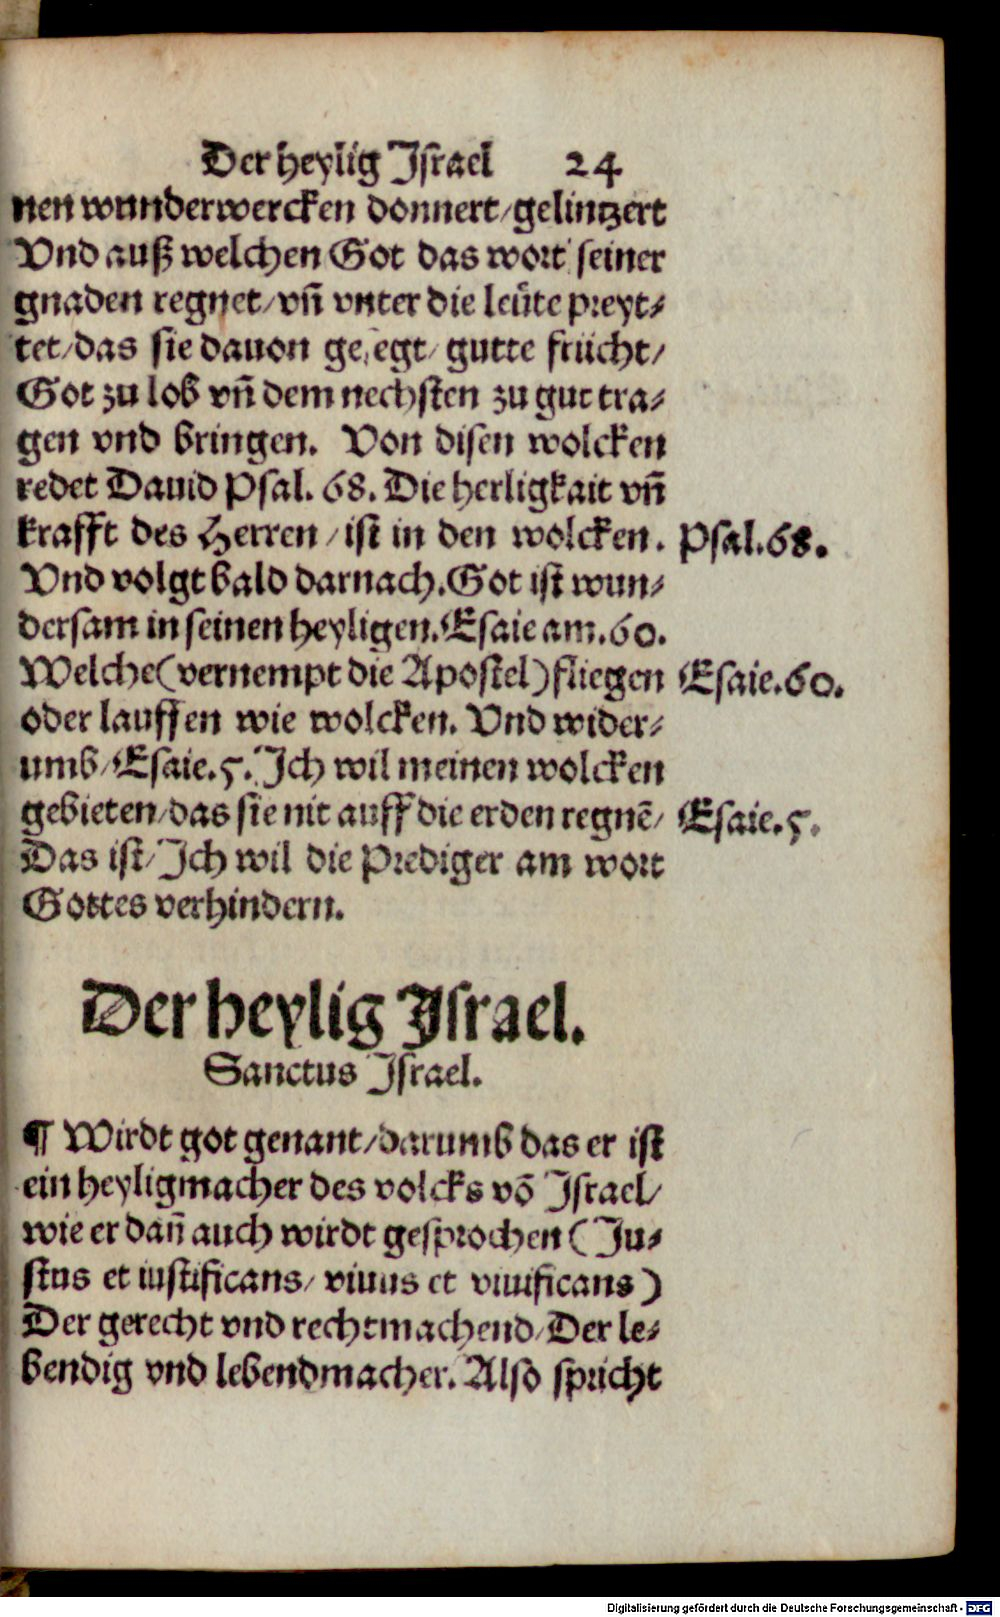 Der heylig Israel 24
nen wunderwercken donnert/gelintzert
Vnd auß welchen Got das wort seiner
gnaden regnet/vñ vnter die leüte preyt⸗
tet/das sie dauon geegt/ gutte frücht/
Got zu lob vñ dem nechsten zu gut tra⸗
gen vnd bringen. Von disen wolcken
redet Dauid Psal. 68. Die herligkait vñ
krafft des Herren/ist in den wolcken.
Psal.68.
Vnd volgt bald darnach.Got ist wun⸗
dersam in seinen heyligen.Esaie am.60.
Welche(vernempt die Apostel)fliegen
Esaie.60.
oder lauffen wie wolcken. Vnd wider⸗
umb/Esaie.5.Ich wil meinen wolcken
gebieten/das sie nit auff die erden regnẽ/
Esaie.5.
Das ist/Ich wil die Prediger am wort
Gottes verhindern.
Der heylig Israel.
Sanctus Israel.
¶ Wirdt got genant/darumb das er ist
ein heyligmacher des volcks võ Israel/
wie er dañ auch wirdt gesprochen (Ju⸗
stus et iustificans/ viuus et viuificans)
Der gerecht vnd rechtmachend/Der le⸗
bendig vnd lebendmacher. Also spricht
Digitalisierung gefördert durch die Deutsche Forschungsgemeinschaft - DFG